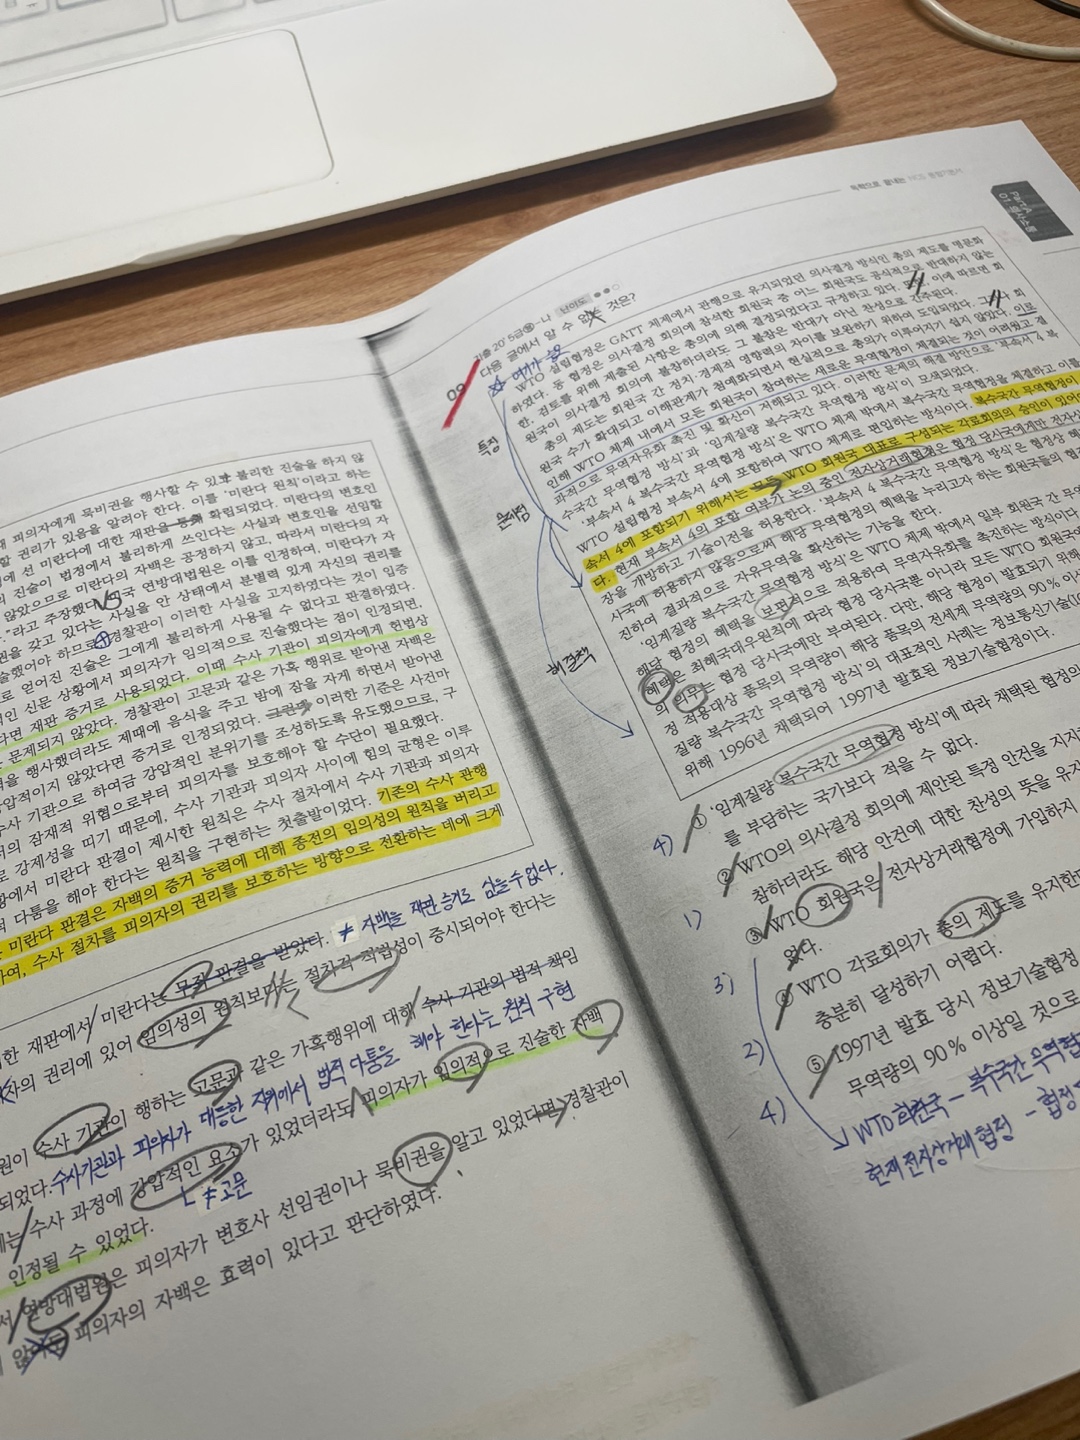 피의자에게 묵비권을 행사할 수 있고 불리한 진술을 하지 않
권리가 있음을 알려야 한다. 이를 '미란다 원칙'이라고 하는
에 선 미란다에 대한 재판을 확립되었다. 미란다의 변호인
진술이 법정에서 불리하게 쓰인다는 사실과 변호인을 선임할
않았으므로 미란다의 자백은 공정하지 않고, 따라서 미란다의 자
."라고 주장했다. 연방대법원은 이를 인정하여, 미란다가 자
권을 갖고 있다는 사실을 안 상태에서 분별력 있게 자신의 권리를
술했어야 하므로 경찰관이 이러한 사실을 고지하였다는 것이 입증
로 얻어진 진술은 그에게 불리하게 사용될 수 없다고 판결하였다.
인 신문 상황에서 피의자가 임의적으로 진술했다는 점이 인정되면,
다면 재판 증거로 사용되었다. 이때 수사 기관이 피의자에게 헌법상
문제되지 않았다. 경찰관이 고문과 같은 가혹 행위로 받아낸 자백은
을 행사했더라도 제때에 음식을 주고 밤에 잠을 자게 하면서 받아낸
압적이지 않았다면 증거로 인정되었다. 이러한 기준은 사건마
수사 기관으로 하여금 강압적인 분위기를 조성하도록 유도했으므로, 구
의 잠재적 위협으로부터 피의자를 보호해야 할 수단이 필요했다.
강제성을 띠기 때문에, 수사 기관과 피의자 사이에 힘의 균형은 이루
황에서 미란다 판결이 제시한 원칙은 수사 절차에서 수사 기관과 피의자
적 다툼을 해야 한다는 원칙을 구현하는 첫출발이었다. 기존의 수사 관행
미란다 판결은 자백의 증거 능력에 대해 종전의 임의성의 원칙을 버리고
하여, 수사 절차를 피의자의 권리를 보호하는 방향으로 전환하는 데에 크게
한 재판에서 미란다는 무죄 판결을 받았다. ≠ 자백을 재판 증거로 삼을 수 없다.
자의 권리에 있어 임의성의 원칙보다는 절차적 적법성이 중시되어야 한다는
원이 수사 기관이 행하는 고문과 같은 가혹행위에 대해 수사 기관의 법적 책임
되었다. 수사기관과 피의자가 대등한 지위에서 법적 다툼을 해야 한다는 원칙 구현
는 수사 과정에 강압적인 요소가 있었더라도 피의자가 임의적으로 진술한 자백
인정될 수 있었다.
≠ 고문
서 연방대법원은 피의자가 변호사 선임권이나 묵비권을 알고 있었다면 경찰관이
피의자의 자백은 효력이 있다고 판단하였다.
독학으로 끝내는 NCS
PART A
09
기출 20' 5급 -나 난이도
다음 글에서 알 수 없는 것은?
WTO 설립협정은 GATT 체제에서 관행으로 유지되었던 의사결정 방식인 총의 제도를 명문화
하였다. 동 협정은 의사결정 회의에 참석한 회원국 중 어느 회원국도 공식적으로 반대하지 않는
한, 검토를 위해 제출된 사항은 총의에 의해 결정되었다고 규정하고 있다. 이에 따르면 회
원국이 의사결정 회의에 불참하더라도 그 불참은 반대가 아닌 찬성으로 간주된다.
총의 제도는 회원국 간 정치·경제적 영향력의 차이를 보완하기 위하여 도입되었다. 그러나 회
원국 수가 확대되고 이해관계가 첨예화되면서 현실적으로 총의가 이루어지기 쉽지 않았다. 이로
인해 WTO 체제 내에서 모든 회원국이 참여하는 새로운 무역협정이 체결되는 것이 어려웠고 결
과적으로 무역자유화 촉진 및 확산이 저해되고 있다. 이러한 문제의 해결 방안으로 '부속서 4 복
수국간 무역협정 방식'과 '임계질량 복수국간 무역협정 방식'이 모색되었다.
'부속서 4 복수국간 무역협정 방식'은 WTO 체제 밖에서 복수국간 무역협정을 체결하고 이를
WTO 설립협정 부속서 4에 포함하여 WTO 체제로 편입하는 방식이다. 복수국간 무역협정이
속서 4에 포함되기 위해서는 모든 WTO 회원국 대표로 구성되는 각료회의의 승인이 있어야
다. 현재 부속서 4의 포함 여부가 논의 중인 전자상거래협정은 협정 당사국에게만 전자상
장을 개방하고 기술이전을 허용한다. '부속서 4 복수국간 무역협정 방식'은 협정상 혜
사국에 허용하지 않음으로써 해당 무역협정의 혜택을 누리고자 하는 회원국들의 협
진하여 결과적으로 자유무역을 확산하는 기능을 한다.
'임계질량 복수국간 무역협정 방식'은 WTO 체제 밖에서 일부 회원국 간 무역
해당 협정의 혜택을 보편적으로 적용하여 무역자유화를 촉진하는 방식이다
혜택은 최혜국대우원칙에 따라 협정 당사국뿐 아니라 모든 WTO 회원국에
의 의무는 협정 당사국에만 부여된다. 다만, 해당 협정이 발효되기 위해
정 적용대상 품목의 무역량이 해당 품목의 전세계 무역량의 90% 이상
질량 복수국간 무역협정 방식'의 대표적인 사례는 정보통신기술
위해 1996년 채택되어 1997년 발효된 정보기술협정이다.
특징
문제점
해결책
4) ① '임계질량 복수국간 무역협정 방식'에 따라 채택된 협정의
를 부담하는 국가보다 적을 수 없다.
② WTO의 의사결정 회의에 제안된 특정 안건을 지지
참하더라도 해당 안건에 대한 찬성의 뜻을 유지
1) ③ WTO 회원국은 전자상거래협정에 가입하지
있다.
3) ④ WTO 각료회의가 총의 제도를 유지한다
충분히 달성하기 어렵다.
2) ⑤ 1997년 발효 당시 정보기술협정
무역량의 90% 이상일 것으로
4) WTO 회원국 - 복수국간 무역협
현재 전자상거래 협정 - 협정